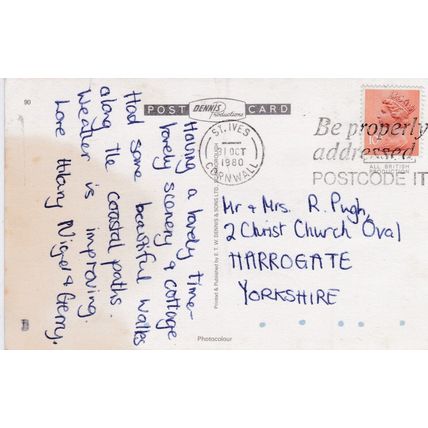 90
POST DENNIS Productions CARD
Having a lovely time-
lovely scenery & cottage
Had some beautiful walks
along the coastal paths.
Weather is improving.
Love Hilary Nigel & Gerry.
Printed & Published by E. T. W. DENNIS & SONS LTD.
Photocolour
ST. IVES
31 OCT
1980
CORNWALL
Be properly
addressed
POSTCODE IT
Mr & Mrs. R. Pugh,
2 Christ Church Oval
HARROGATE
YORKSHIRE